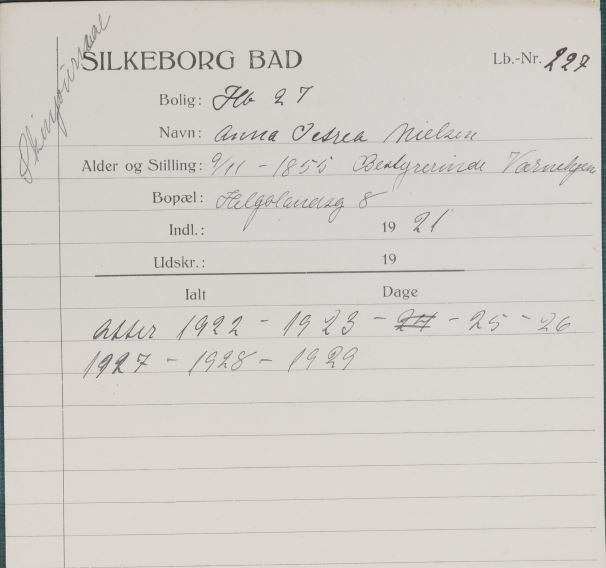 Skinjournal
SILKEBORG BAD
Lb.-Nr. 227
Bolig: Hb 27
Navn: Anna Petrea Nielsen
Alder og Stilling: 9/11 - 1855 Bestyrerinde Værnehjem
Bopæl: Helgolandsg 8
Indl.: 19 21
Udskr.: 19
Ialt Dage
atter 1922 - 1923 - 24 - 25 - 26
1927 - 1928 - 1929